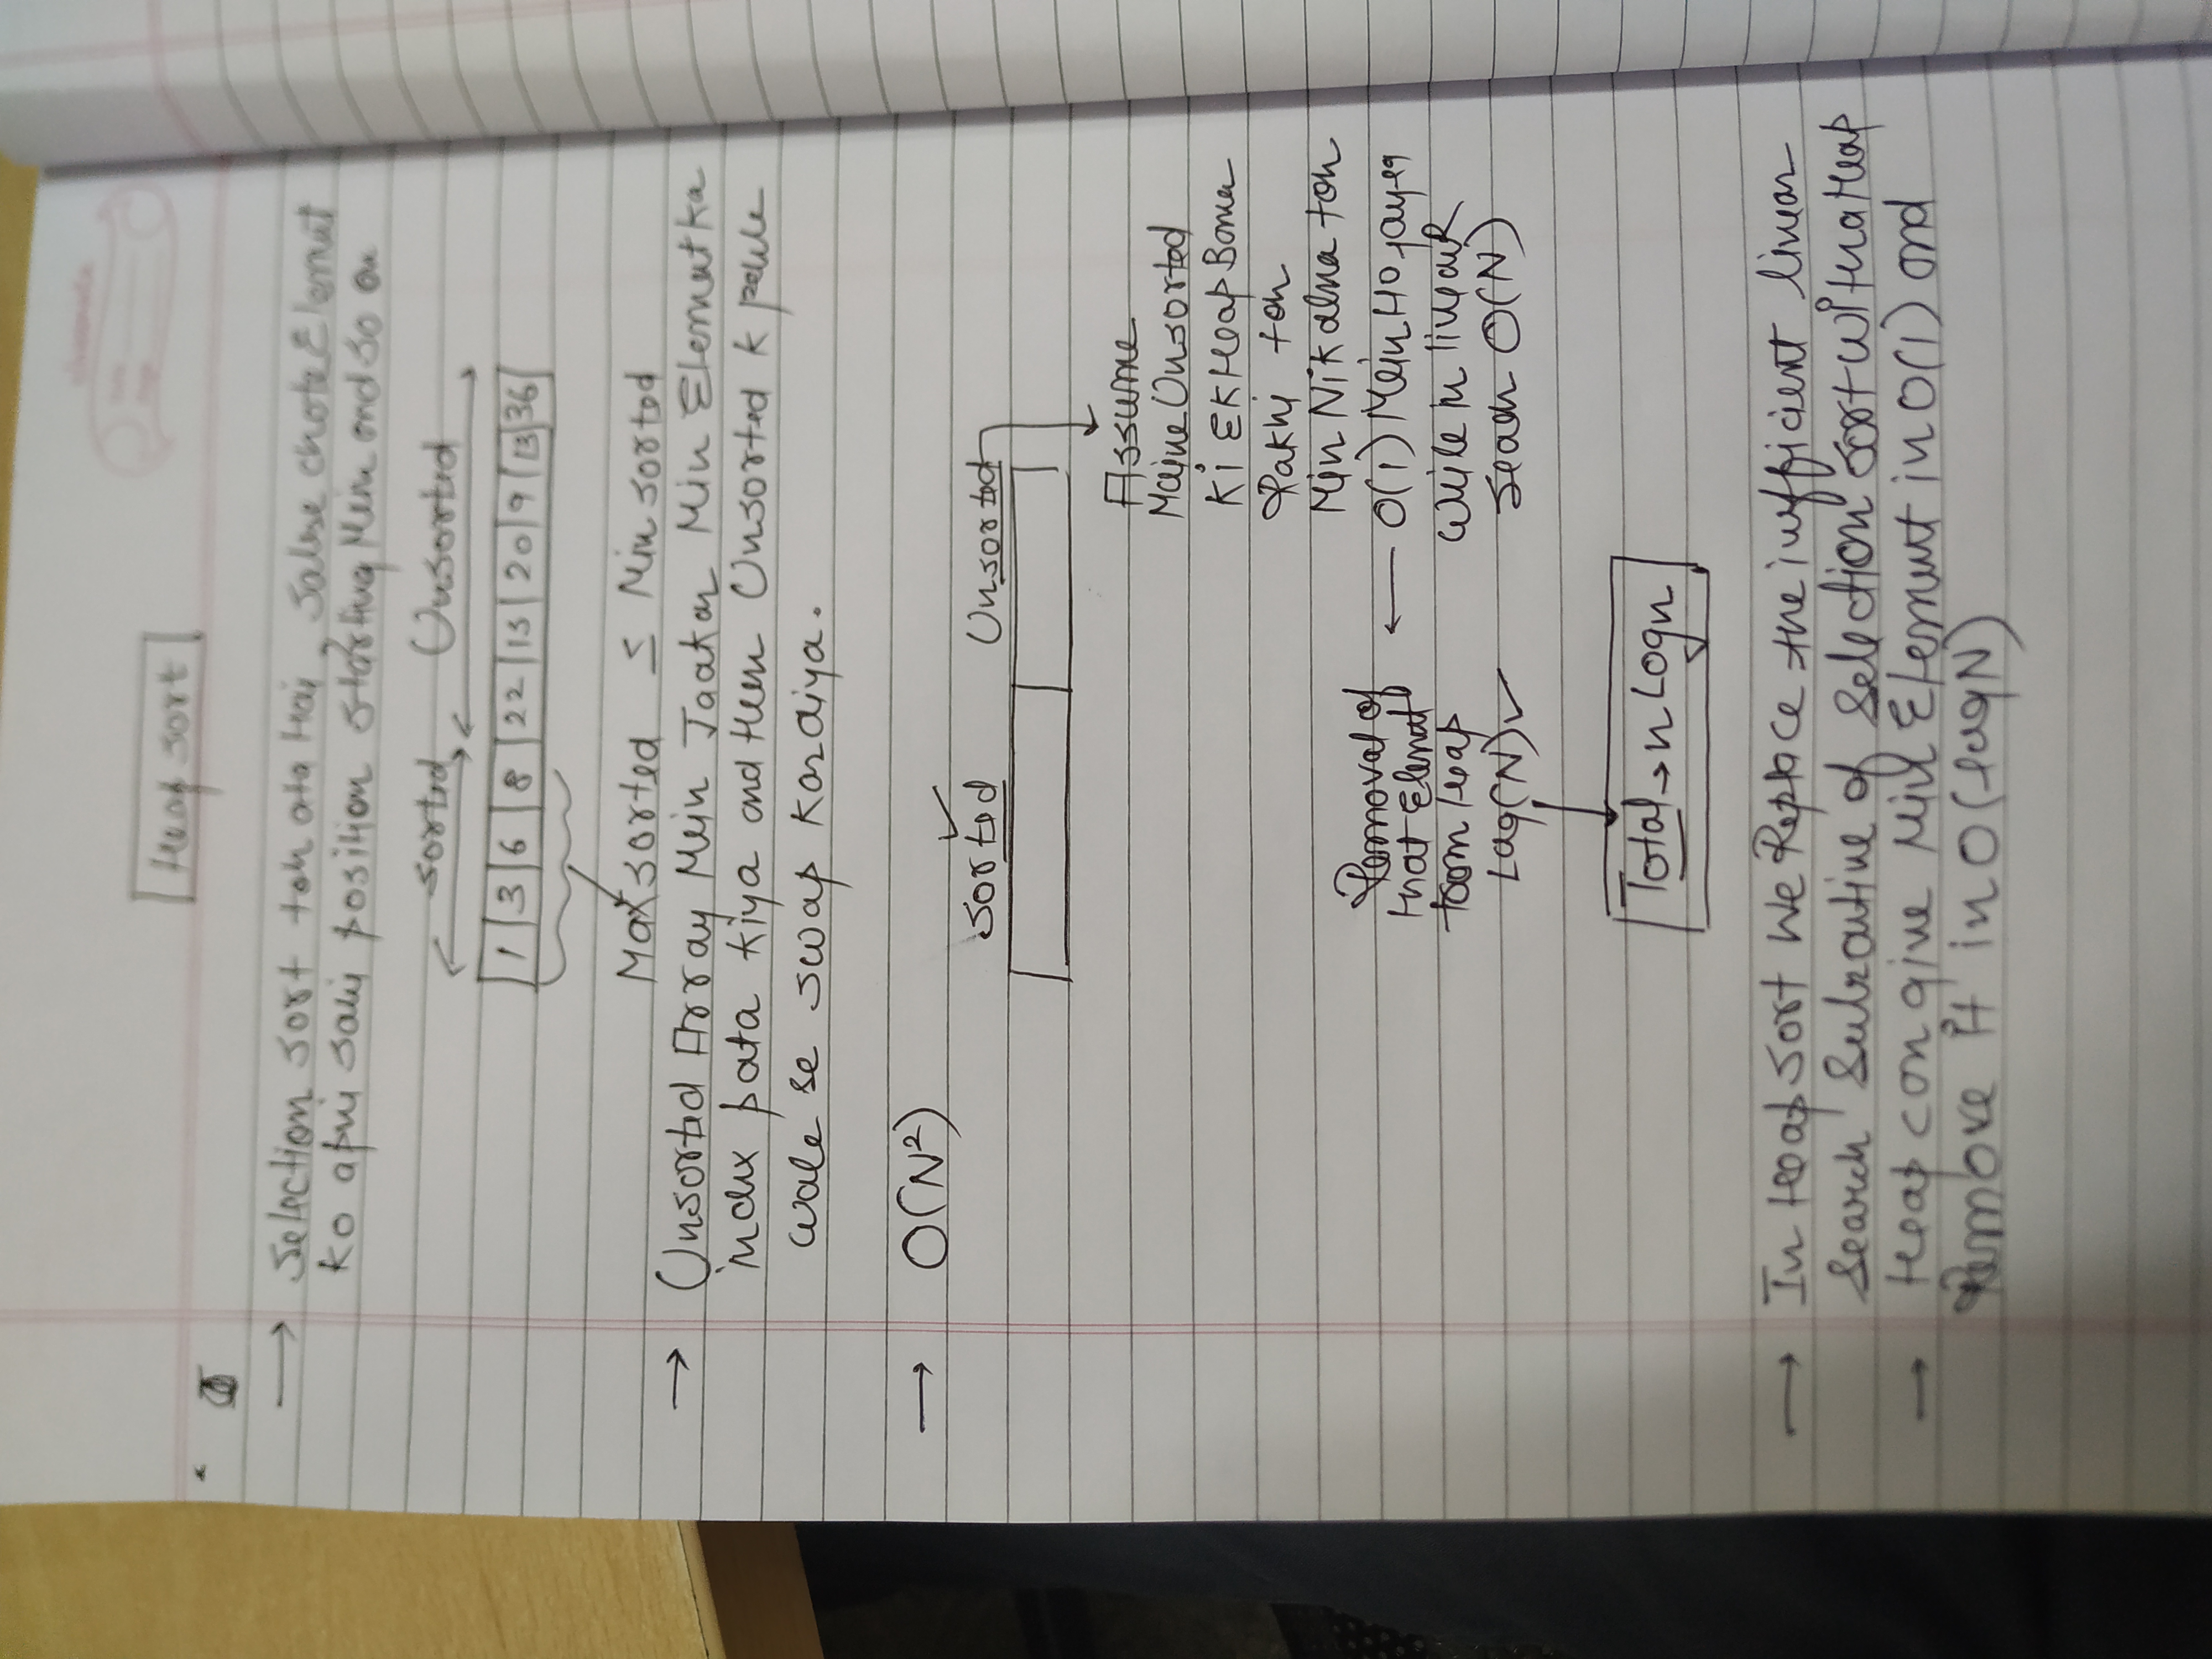 Heap Sort
→ Selection sort toh ata Hai, Sabse chote Element
ko apni sahi position starting Mein and so on
sorted Unsorted
1 3 6 8 22 15 20 9 13 36
Max sorted ≤ Min sorted
→ Unsorted Array Mein Jaakar Min Element ka
index pata kiya and then Unsorted k pehle
wale se swap kardiya.
→ O(N²)
sorted Unsorted
Assume
Maine Unsorted
Ki Ek Heap Bana
Rakhi toh
Min Nikalna toh
O(1) Mein Ho jayega
while in linear
seach O(N)
Removal of
that Element
from heap
Log(N)
Total → n Logn
→ In Heap Sort We Replace the inefficient linear
Search Subroutine of Selection sort with a Heap
→ Heap can give Min Element in O(1) and
Remove it in O(logN)